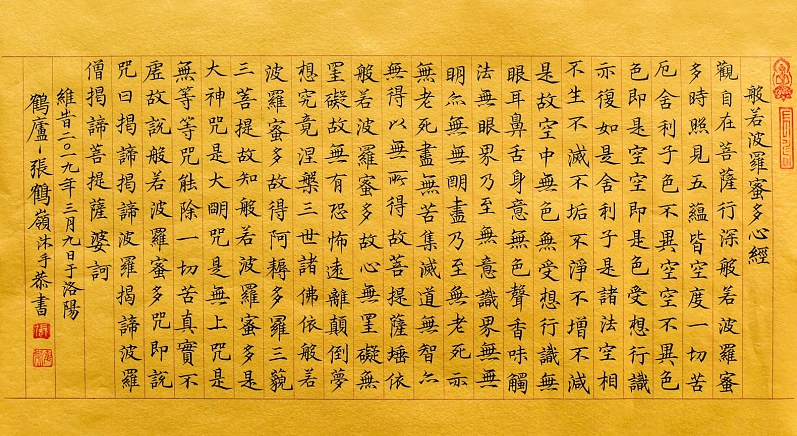 般若波羅蜜多心經
觀自在菩薩行深般若波羅蜜
多時照見五蘊皆空度一切苦
厄舍利子色不異空空不異色
色即是空空即是色受想行識
亦復如是舍利子是諸法空相
不生不滅不垢不淨不增不減
是故空中無色無受想行識無
眼耳鼻舌身意無色聲香味觸
法無眼界乃至無意識界無無
明亦無無明盡乃至無老死亦
無老死盡無苦集滅道無智亦
無得以無所得故菩提薩埵依
般若波羅蜜多故心無罣礙無
罣礙故無有恐怖遠離顛倒夢
想究竟涅槃三世諸佛依般若
波羅蜜多故得阿耨多羅三藐
三菩提故知般若波羅蜜多是
大神咒是大明咒是無上咒是
無等等咒能除一切苦真實不
虛故說般若波羅蜜多咒即說
咒曰揭諦揭諦波羅揭諦波羅
僧揭諦菩提薩婆訶
維昔二〇一九年三月九日于洛陽
鶴廬、張鶴嶺沐手恭書